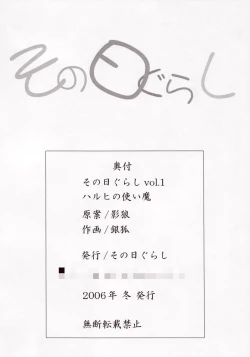 その日ぐらし
奥付
その日ぐらし vol.1
ハルヒの使い魔
原案/影狼
作画/銀狐
発行/その日ぐらし
2006年 冬 発行
無断転載禁止